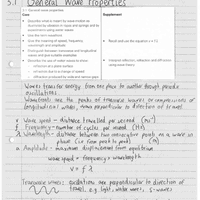 3.1 General Wave Properties
3.1 General wave properties
Core
Supplement
• Describe what is meant by wave motion as
illustrated by vibration in ropes and springs and by
experiments using water waves
• Use the term wavefront
• Give the meaning of speed, frequency,
wavelength and amplitude
• Distinguish between transverse and longitudinal
waves and give suitable examples
• Describe the use of water waves to show:
– reflection at a plane surface
– refraction due to a change of speed
– diffraction produced by wide and narrow gaps
• Recall and use the equation v = f λ
Waves transfer energy from one place to another through periodic
oscillations.
Wavefronts are the peaks of transverse waves or compressions of
longitudinal waves, drawn perpendicular to direction of travel.
Wave speed = distance travelled per second (ms⁻¹)
Frequency = number of cycles per second (Hz)
λ Wavelength = distance between two consecutive points on a wave in
phase (i.e. from peak to peak) (m)
Amplitude = maximum displacement from equilibrium
wave speed = frequency × wavelength
v = f λ
Transverse waves: oscillations are perpendicular to direction of
travel, e.g. light, water waves, s-waves